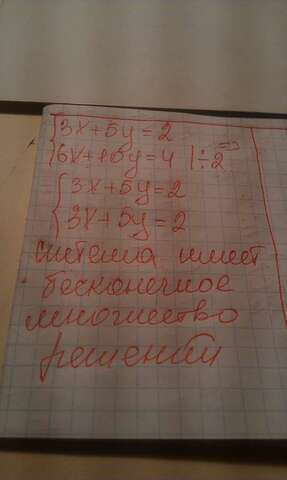 3x+5y=2
6x+10y=4 |÷2 =>
3x+5y=2
3x+5y=2
система имеет
бесконечное
множество
решений